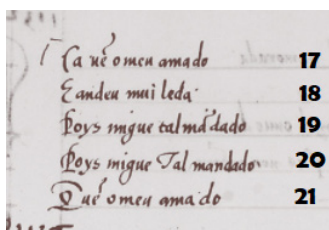 Ca uẽ omeu amado 17
E andeu mui leda. 18
Poys migue tal mãdado 19
Poys migue Tal mandado. 20
Que uẽ omeu amado 21